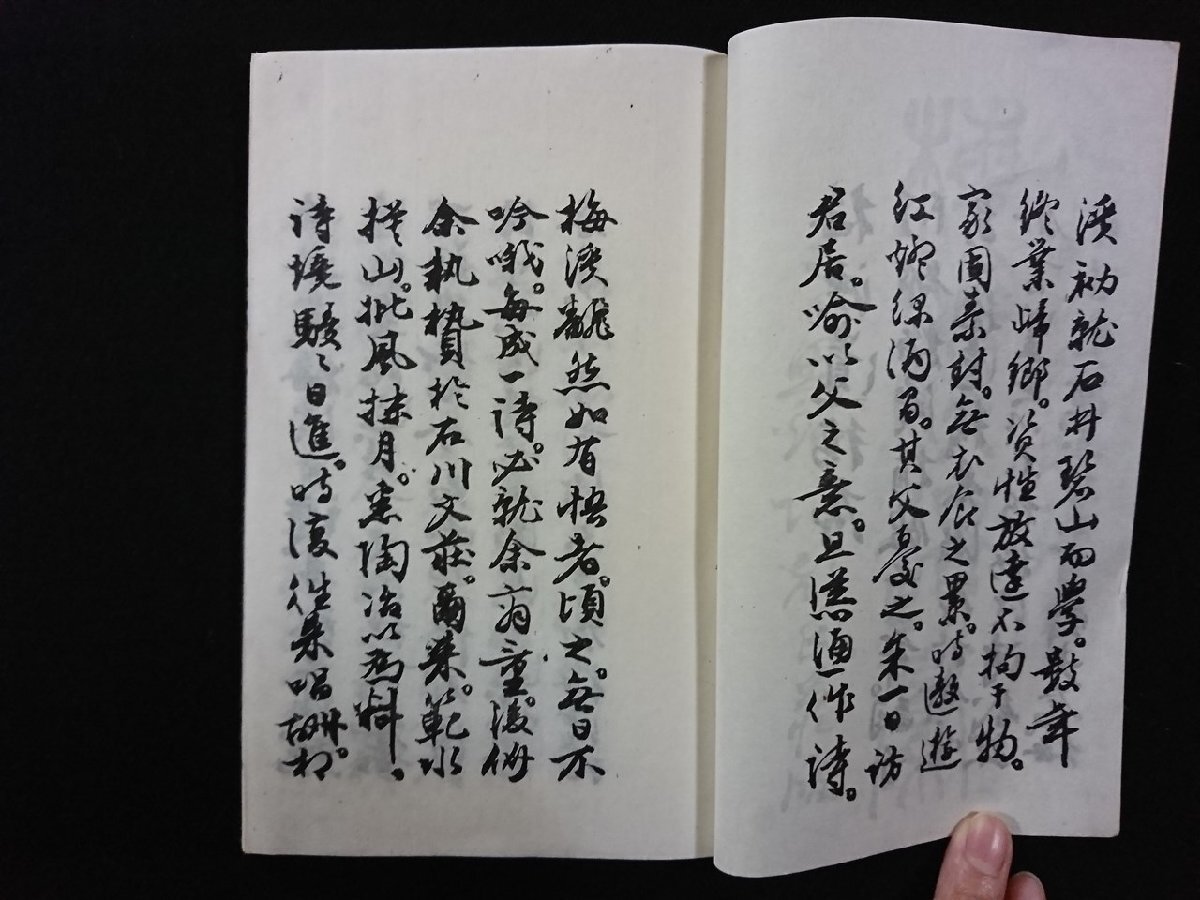 溪初就石井碧山而學。數年
終業歸鄉。資性放達不拘于物。
家固素封。無衣食之累。時遨遊
紅燈綠酒間。其父憂之。余一日訪
君居。喻以父之意。且慫慂作詩。
梅溪飜然如有悟者。頃之。無日不
吟哦。每成一詩。必就余商量。後倂
余執贄於石川文莊。爾來。範水
模山。批風抹月。熏陶冶以爲料。
詩境駸々日進。時復往來唱酬。